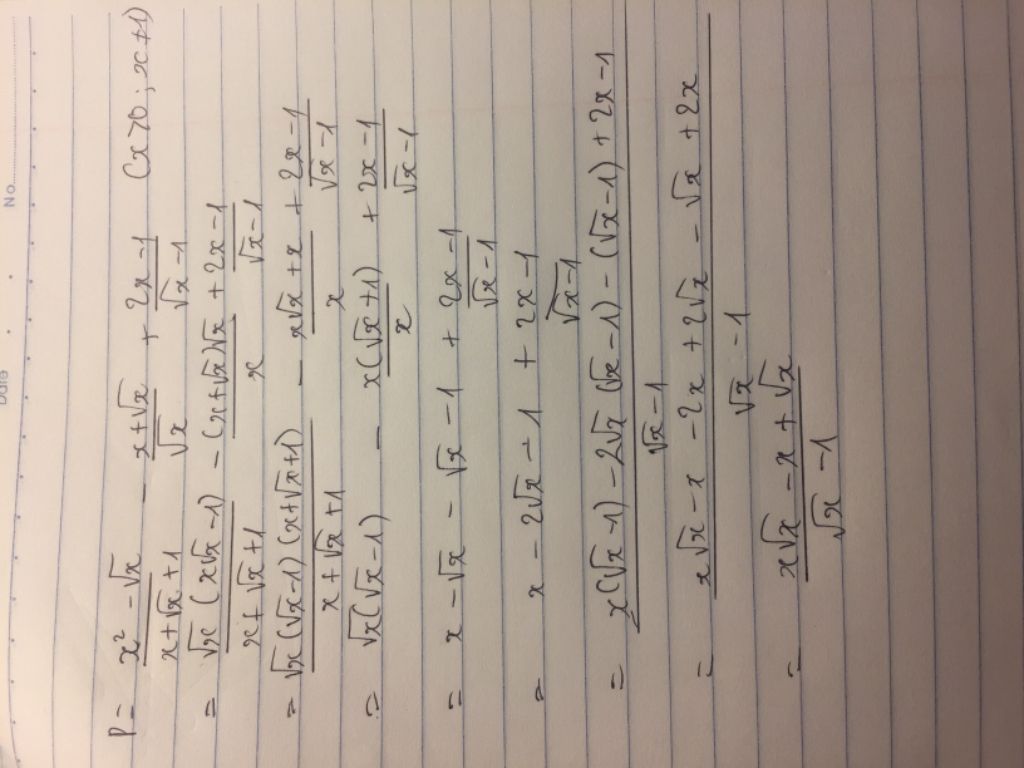 No.
Date
P = \frac{x² - √x}{x + √x + 1} - \frac{x + √x}{√x} + \frac{2x - 1}{√x - 1} (x > 0 ; x ≠ 1)
= \frac{√x (x√x - 1)}{x + √x + 1} - \frac{(x + √x)√x}{x} + \frac{2x - 1}{√x - 1}
= \frac{√x (√x - 1) (x + √x + 1)}{x + √x + 1} - \frac{x√x + x}{x} + \frac{2x - 1}{√x - 1}
= √x (√x - 1) - \frac{x (√x + 1)}{x} + \frac{2x - 1}{√x - 1}
= x - √x - √x - 1 + \frac{2x - 1}{√x - 1}
= x - 2√x - 1 + \frac{2x - 1}{√x - 1}
= \frac{x (√x - 1) - 2√x (√x - 1) - (√x - 1) + 2x - 1}{√x - 1}
= \frac{x√x - x - 2x + 2√x - √x + 2x}{√x - 1}
= \frac{x√x - x + √x}{√x - 1}